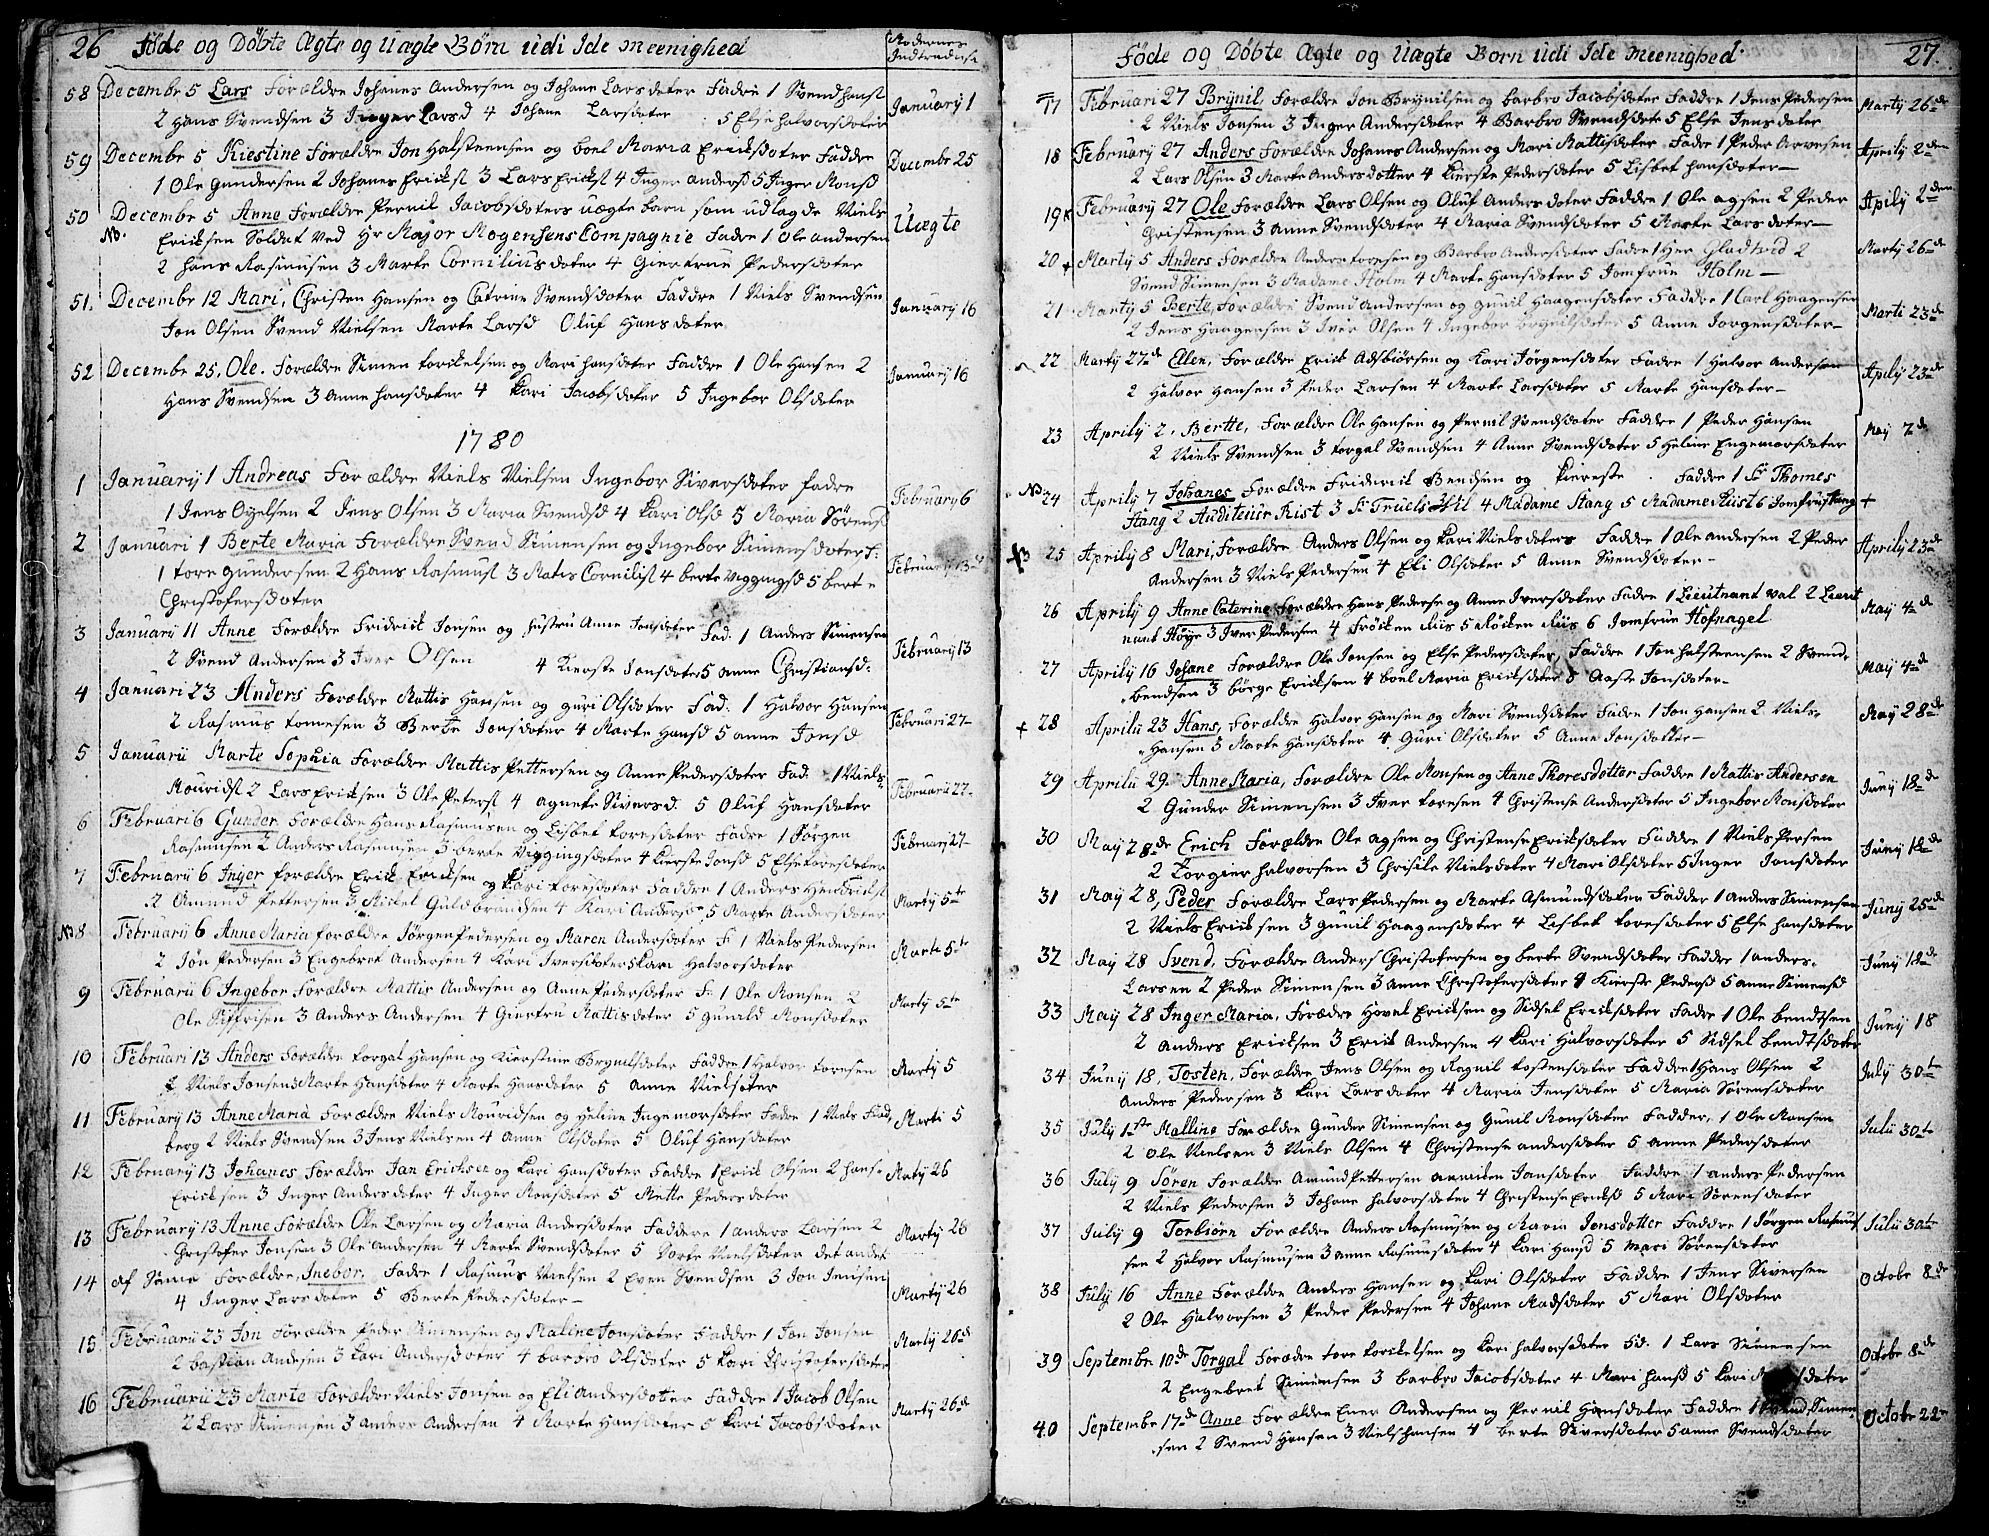 26 Føde og Døbte Ægte og Uægte Børn udi Ide meenighed
Modernes Indtroduct
58 Decembe 5 Lars Forældre Johanes Andersen og Johane Larsdater Fadre 1 Svend hansl
2 Hans Svendsen 3 Inger Larsd 4 Johane Larsdater 5 Else halvorsdater January 1
59 Decembe 5 Kiestine Forældre Jon Halsteensen og boel Maria Ericksdater Faddre
1 Ole Gundersen 2 Johanes Ericksl 3 Lars Ericksl 4 Inger andersd 5 Inger Monsd Decembe 25
50 Decembe 5 Anne Forældre Pernil Jacobsdaters uægte barn som udlagde Niels
NB. Ericksen Soldat ved Hr Major Mogensens Compagnie Fadre 1 Ole andersen Uægte
2 hans Rasmusen 3 Marte Cornilius dater 4 Giertrue Pedersdater
51. Decembe 12 Mari, Christen Hansen og Catrine Svendsdater Faddre 1 Niels Svendsen
Jon Olsen Svend Nielsen Marte Larsd Oluf Hansdater January 16
52 Decembe 25. Ole. Forældre Simen torckelsen og Mari hansdater Faddre 1 Ole Hansen 2
Hans Svendsen 3 Anne hansdater 4 Kari Jacobsdater 5 Ingebor Olsdater January 16
1780
1 January 1 Andreas Forældre Niels Nielsen Ingebor Siversdater fadre
1 Jens Olsen 2 Jens Olsen 3 Maria Svendsd 4 Kari Olsd 5 Maria Sørensd February 6
2 Januari 1 Berte Maria Forældre Svend Simensen og Ingebor Simensdater F:
1 tore gundersen 2 Hans Rasmusl 3 Matis Cornilisl 4 berte Viggingsd 5 berte
Christofersdater February 13
3 January 11 Anne Forældre Fridrick Jonsen og Hustru Anne Jonsdater Fad: 1 Anders Simensen
2 Svend Andersen 3 Iver Olsen 4 Kierste Jonsdater 5 anne Christiansd: February 13
4 Januari 23 Anders Forældre Mattis Hansen og guri Olsdater Fad: 1 Halvor Hansen
2 Rasmus tomesen 3 Berte Jonsdater 4 Marte Hansd 5 anne Jonsd Februari 27
5 Januarii Marte Sophia Forældre Mattis Pettersen og Anne Pedersdater Fad. 1 Niels
Mouridsl 2 Lars Ericksen 3 Ole Petersl 4 agnete Siversd. 5 Oluf Hansdater Februarii 27.
6 Februari 6 Gunder Forældre Hans Rasmusen og Lisbet toresdater Fadre 1 Jørgen
Rasmusen 2 Anders Rasmusen 3 berte Viggingsdater 4 Kierste Jonsd 5 Else toresdater February 27
7 Februarii 6 Inger forældre Erick Ericksen og Kari toresdater Faddre 1 Anders Hendricksl
2 Amund Pettersen 3 Mickel Guldbrandsen 4 Kari Andersd 5 Marte Andersdater Marty 5te
NB 8 Februarij 6 Anne Maria forældre Jørgen Pedersen og Maren Andersdater F: 1 Niels Pedersen
2 Jøn Pedersen 3 Engebret Andersen 4 Kari Iversdater 5 Kari Halvorsdater Marte 5te
9 Februarii 6 Ingebor Forældre Mattis Andersen og Anne Pedersdater F: 1 Ole Monsen 2
Ole Siffrisen 3 Anders Andersen 4 Giertru Mattisdater 5 gunild Monsdater Marty 5te
10 Februari 13 Anders Forældre torgal Hansen og Kierstine Brynilsdater Faddre 1 Halvor toresen
2 Niels Jonsen 3 Marte Hansdater 4 Marte Hansdater 5 Anne Nielsdter Marty 5
11 February 13 Anne Maria Forældre Niels Mouridsen og Heline Ingemorsdater Fadre 1 Niels
berg 2 Niels Svendsen 3 Jens Nielsen 4 Anne Olsdater 5 Oluf Hansdater Marti 5
12 February 13 Johanes Forældre Jan Erichsen og Kari Hansdater Faddre 1 Erick Olsen 2 hans
Ericksen 3 Inger Andersdater 4 Inger Monsdater 5 Mette Pedersdater Marty 26
13 February 13 Anne Forældre Ole Larsen og Maria Andersdater Faddere 1 anders Larsen 2
Christofer Jonsen 3 Ole Andersen 4 Marte Svendsdater 5 Dorte Nielsdater det andet Marty 26
14 af Same Forældre, Inebor. Fadre 1 Rasmus Nielsen 2 Even Svendsen 3 Jon Jensen
4 Inger Larsdater 5 Berte Pedersdater Marty 26
15 Februarii 23 Jon Forældre Peder Simensen og Maline Jonsdater Faddre 1 Jon Jonsen
2 bastian Andesen 3 Kari Andersdater 4 barbro Olsdater 5 Kari Christofersdater Marty 26de
16 Februarii 23 Marte Forældre Niels Jonsen og Eli Andersdotter Faddre 1 Jacob Olsen
2 Lars Simensen 3 Anders Andersen 4 Marte Hansdater 5 Kari Jacobsdater Marty 26de
Føde og Døbte Ægte og Uægte Børn udi Ide meenighed. 27.
17 Februari 27 Brynil, Forældre Jon Brynilsen og barbro Jacobsdater Faddre 1 Jens Pedersen
2 Niels Jonsen 3 Inger Andersdater 4 Barbro Svendsdate 5 Else Jensdater Marty 26de
18 February 27 Anders Forældre Johanes Andersen og Mari Mattisdater Fadre 1 Peder Arvesen
2 Lars Olsen 3 Marte Andersdotter 4 Kierste Pedersdater 5 Lisbet hansdater Aprily 2den
19 February 27 Ole Forældre Lars Olsen og Oluf Andersdater Faddre 1 Ole agsen 2 Peder
Christensen 3 Anne Svendsdater 4 Maria Svendsdater 5 Marte Larsdater Aprily 2den
20 + Marty 5 Anders Forældre Anders toresen og Barbro Andersdater Fadre 1 Her Gladtved 2
Svend Simensen 3 Madame Holm 4 Marte Hansdater 5 Jomfrue Holm Marty 26de
21 Marty 5 Berte, Forældre Svend Andersen og gunil Haagensdater Faddre 1 Carl Haagensen
2 Jens Haagensen 3 Iver Olsen 4 Ingebor Brynilsdater 5 Anne Jorgensdater Marti 23de
22 Marty 27de Ellen, Forældre Erick Adsbiørsen og Kari Jørgensdater Fadre 1 Halvor Andersen
2 Halvor Hansen 3 Peder Larsen 4 Marte Larsdater 5 Marte Hansdater Aprily 23de
23 Aprily 2. Bertte, Forældre Ole Hansen og Pernil Svendsdater Faddre 1 Peder Hansen
2 Niels Svendsen 3 torgal Svendsen 4 Anne Svendsdater 5 Heline Engemorsdater May 7de
NB 24 Aprily 7 Johanes Forældre Friderick Bendsen og Kiereste Faddre 1 Sr Thomes
Stang 2 Auditeur Rist 3 Sr Truels 4 Madame Stang 5 Madame Rist 6 Jomfru Stang +
NB 25 Aprily 8 Mari, Forældre Anders Olsen og Kari Nielsdaters Faddre 1 Ole andersen 2 Peder
Andersen 3 Niels Pedersen 4 Eli Olsdater 5 Anne Svendsdater Aprily 23de
26 Aprily 9 Anne Caterine Forældre Hans Pederse og Anne Iversdater Fadre 1 Lieutnant val 2 Lieut
nant Høye 3 Iver Pedersen 4 Frøicken Riis 5 Røicken Riis 6 Jomfrue Hofnagel May 4de
27 Aprily 16 Johane Forældre Ole Jonsen og Else Pedersdater, Faddre 1 Jon halsteensen 2 Svend
bendsen 3 børge Ericksen 4 boel Maria Ericksdater 5 Aaste Jonsdater May 4de
+ 28 Aprilii 23 Hans, Forældre Halvor Hansen og Mari Svendsdater Fadre 1 Jon Hansen 2 Niels
Hansen 3 Marte Hansdater 4 Guri Olsdater 5 Anne Jonsdotter May 28de
29 Aprilii 29. Anne Maria, Forældre Ole Monsen og Anne Thoresdotter Faddre 1 Mattis Andersen
2 Gunder Simensen 3 Iver toresen 4 Christense Andersdater 5 Ingebor Monsdater Juny 18de
30 May 28de Erich Forældre Ole agsen og Christense Ericksdater Faddre 1 Niels Persen
2 Torgier halvorsen 3 Chisile Nielsdater 4 Mari Olsdater 5 Inger Jonsdater Juny 18de
31 May 28, Peder Forældre Lars Pedersen og Marte Asmundsdater Fadder 1 anders Simensen
2 Niels Ericksen 3 gunil Haagensdater 4 Lisbet toresdater 5 Else hansdater Juny 25de
32 May 28 Svend, Forældre Anders Christofersen og berte Svendsdater Faddre 1 anders
Larsen 2 Peder Simensen 3 anne Christofersdater 4 Kierste Pedersd 5 anne Simensd Juny 18de
33 May 28 Inger Maria, Forædre Hovel Ericksen og Sidsel Ericksdater Fadre 1 Ole bendtsen
2 Anders Ericksen 3 Erick Andersen 4 Kari Halvorsdater 5 Sidsel bendtsdater Juny 18
34 Juny 18, Tosten, Forældre Jens Olsen og Ragnil tostensdater Faddre 1 Hans Olsen 2
Anders Pedersen 3 Kari Larsdater 4 Maria Jensdater 5 Maria Sørensdater July 30te
35 July 1ste Malline Forældre Gunder Simensen og Gunil Monsdater Fadder, 1 Ole Monsen
2 Ole Nielsen 3 Niels Olsen 4 Christense andersdater 5 anne Pedersdater Julii 30te
36 July 9 Søren Forældre Amund Pettersen anniken Jonsdater Faddre 1 anders Pedersen
2 Niels Pedersen 3 Johane halvorsdater 4 Christense Ericksd 5 Mari Sørensdater
37 July 9 Torbiørn Forældre Anders Rasmusen og Maria Jonsdotter Faddre 1 Jørgen Rasmus
sen 2 Halvor Rasmusen 3 anne Rasmusdater 4 Kari Hansd 5 Mari Sørensdater Julii 30te
38 July 16 Anne Forældre Anders Hansen og Kari Olsdater Faddre 1 Jens Siversen
2 Ole Halvorsen 3 Peder Pedersen 4 Johane Madsdater 5 Mari Olsdater Octobe 8de
39 Septembe 10de Torgal Forældre tore torckelsen og Kari halvorsdater Fad. 1 Lars Simensen
2 Engebret Simensen 3 barbro Jacobsdater 4 Mari hansd 5 Kari dater Octobe 8de
40 Septembe 17de Anne Forældre Even Andersen og Pernil Hansdater Faddre 1 Svend Simen
sen 2 Svend Hansen 3 Niels hansen 4 berte Siversdater 5 anne Svendsdater Octobe 22